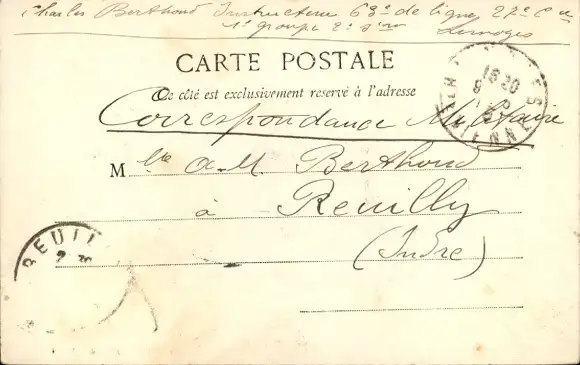 Charles Berthoud Instructeur 63e de ligne 27e Cie
1er groupe 2e
Limoges
CARTE POSTALE
Ce côté est exclusivement reservé à l'adresse
Correspondance Militaire
Mlle A.M. Berthoud
à Reuilly
(Indre)
16 30
VIENNE
REUIL